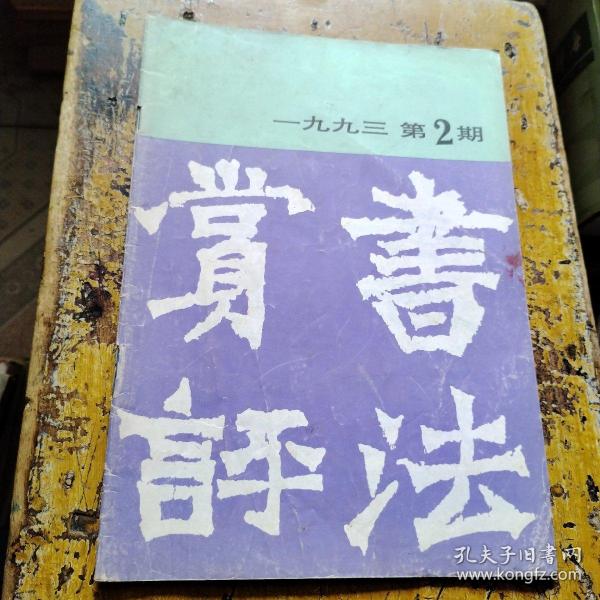 一九九三 第2期
書法
賞評
孔夫子旧書网
www.kongfz.com